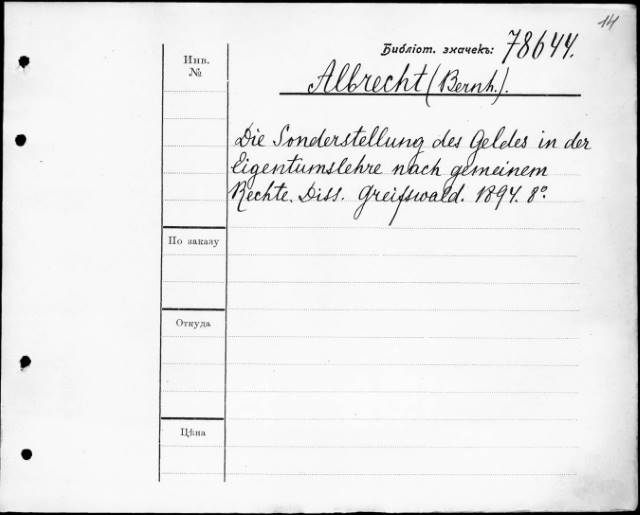 14
Библіот. значекъ: 78644.
Инв.
№
Albrecht (Bernh.).
Die Sonderstellung des Geldes in der
Eigentumslehre nach gemeinem
Rechte. Diss. Greifswald. 1894. 8°.
По заказу
Откуда
Цѣна